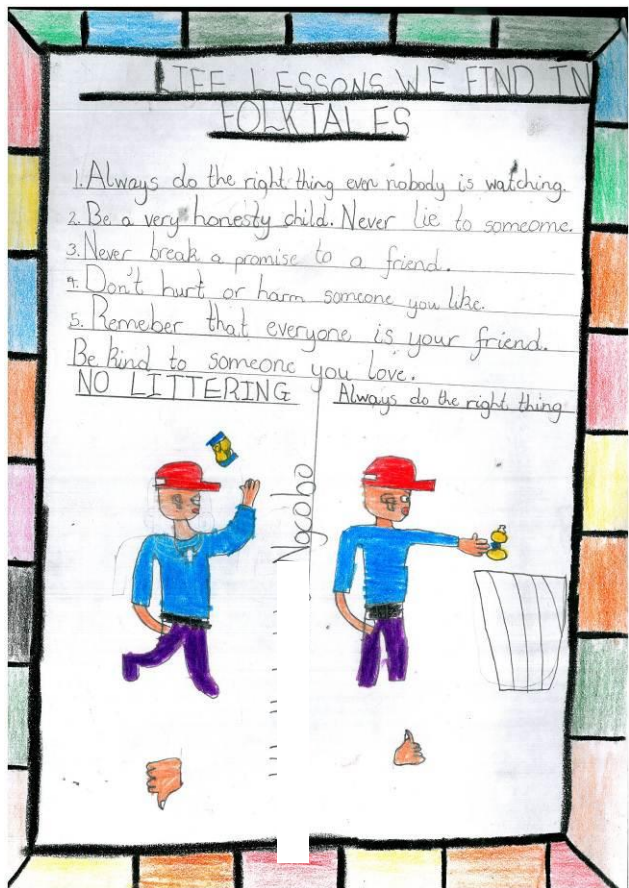 LIFE LESSONS WE FIND IN
FOLKTALES
1. Always do the right thing even nobody is watching.
2. Be a very honesty child. Never lie to someome.
3. Never break a promise to a friend.
4. Don't hurt or harm someone you like.
5. Remeber that everyone is your friend.
Be kind to someone you love.
NO LITTERING
Always do the right thing
Ngcobo